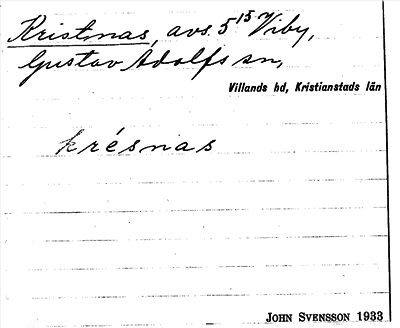 Kristmas, avs. 5 15 Viby,
Gustav Adolfs sn,
Villands hd, Kristianstads län
krésnas
JOHN SVENSSON 1933